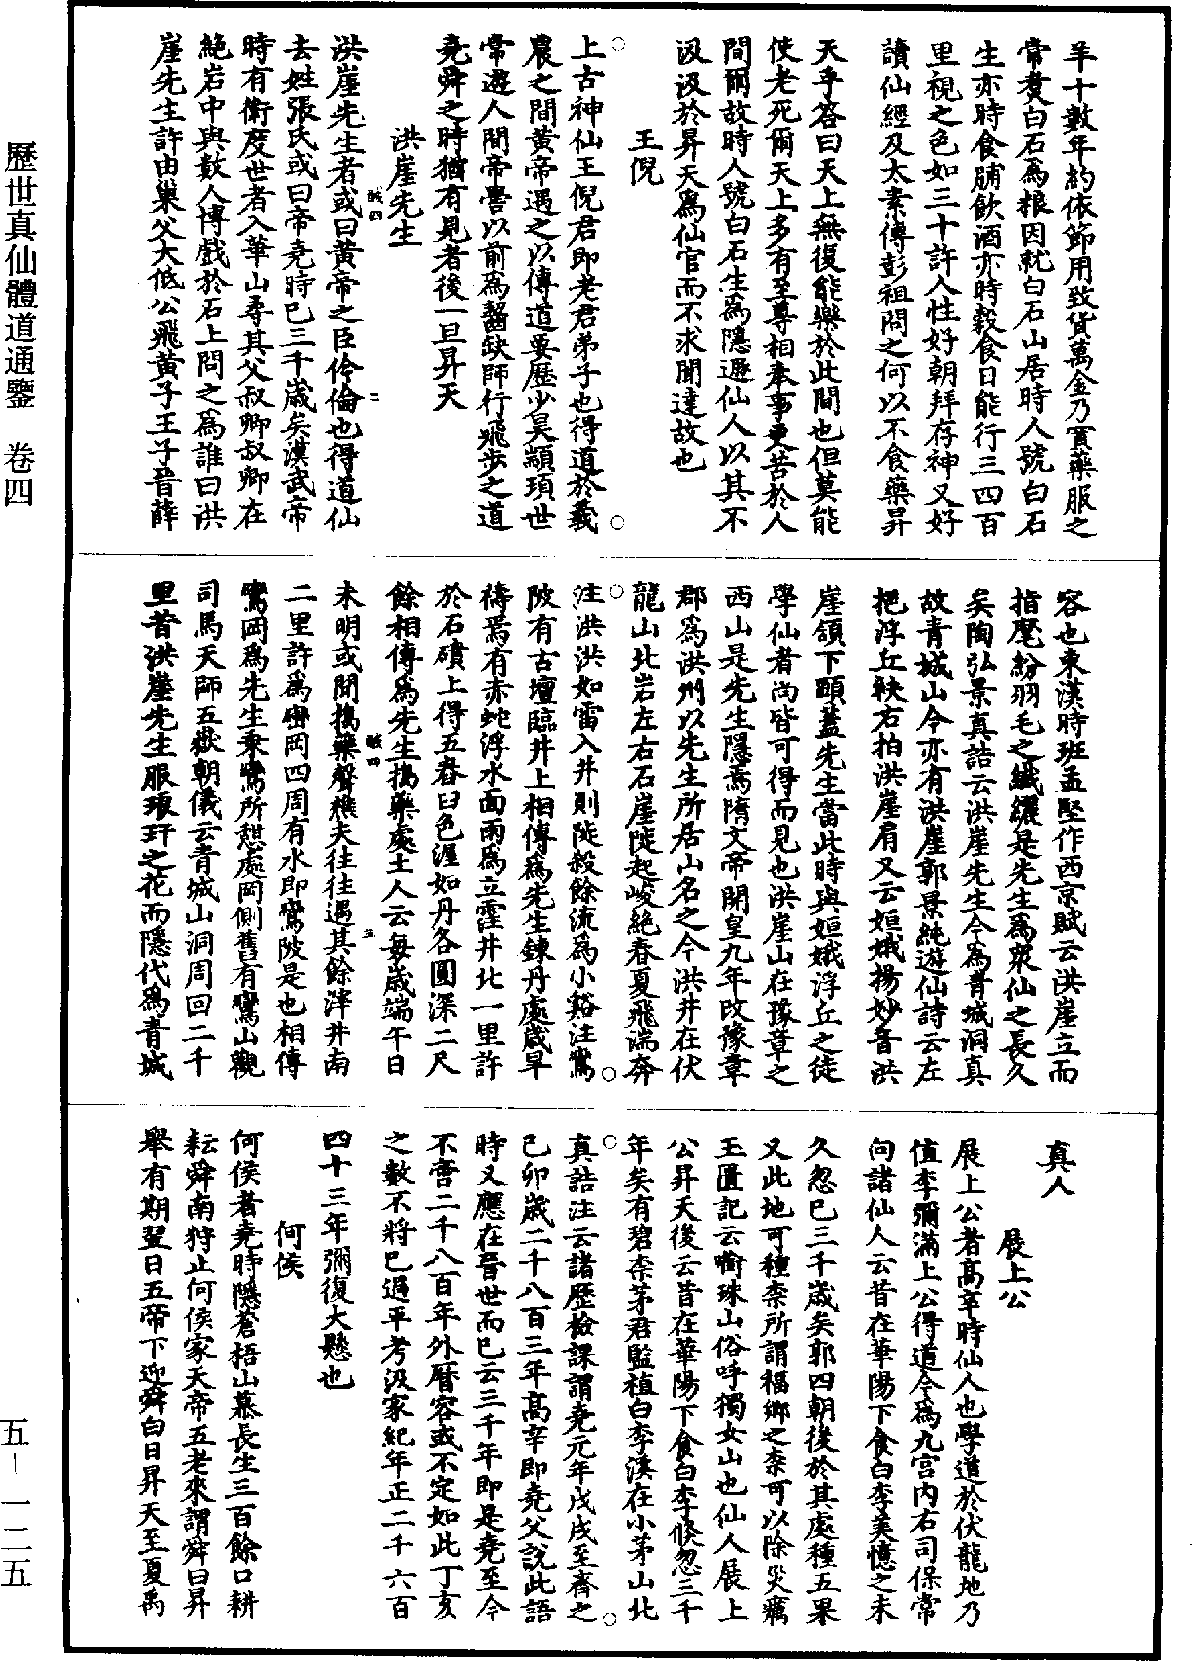 歷世真仙體道通鑒　卷四
羊十數年約依節用致貨萬金乃買藥服之
常煑白石爲粮因就白石山居時人號白石
生亦時食脯飲酒亦時穀食日能行三四百
里視之色如三十許人性好朝拜存神又好
讀仙經及太素傳彭祖問之何以不食藥昇
天乎答曰天上無復能樂於此間也但莫能
使老死爾天上多有至尊相奉事更苦於人
間爾故時人號白石生爲隱遯仙人以其不
汲汲於昇天爲仙官而不求聞達故也
王倪
上古神仙王倪君即老君弟子也得道於羲
農之間黃帝遇之以傳道要歷少昊顓頊世
常遊人間帝嚳以前爲齧缺師行飛步之道
堯舜之時猶有見者後一旦昇天
洪崖先生
洪崖先生者或曰黃帝之臣伶倫也得道仙
去姓張氏或曰帝堯時已三千歲矣漢武帝
時有衛度世者入華山尋其父叔卿叔卿在
絕岩中與數人博戲於石上問之爲誰曰洪
崖先生許由巢父大低公飛黃子王子晉薛
容也東漢時班孟堅作西京賦云洪崖立而
指麾紛羽毛之纖纚是先生爲衆仙之長久
矣陶弘景真誥云洪崖先生今爲青城洞真
故青城山今亦有洪崖郭景純遊仙詩云左
把浮丘袂右拍洪崖肩又云姮娥揚妙音洪
崖頷下頤蓋先生當此時與姮娥浮丘之徒
學仙者尚皆可得而見也洪崖山在豫章之
西山是先生隱焉隋文帝開皇九年改豫章
郡爲洪州以先生所居山名之今洪井在伏
龍山北岩左右石崖陡起峻絕春夏飛湍奔
注洪洪如雷入井則陡殺餘流爲小谿注鸞
陂有古壇臨井上相傳爲先生鍊丹處歲旱
禱焉有赤蛇浮水面雨爲立霔井北一里許
於石磧上得五舂臼色渥如丹各圓深二尺
餘相傳爲先生搗藥處土人云每歲端午日
未明或聞搗藥聲樵夫往往遇其餘滓井南
二里許爲巒岡四周有水即鸞陂是也相傳
鸞岡爲先生乘鸞所憇處岡側舊有鸞山觀
司馬天師五嶽朝儀云青城山洞周回二千
里昔洪崖先生服琅玕之花而隱代爲青城
真人
展上公
展上公者高辛時仙人也學道於伏龍地乃
值李彌滿上公得道今爲九宮內右司保常
向諸仙人云昔在華陽下食白李美憶之未
久忽已三千歲矣郭四朝後於其處種五果
又此地可種柰所謂福鄉之柰可以除災癘
玉匱記云衙珠山俗呼獨女山也仙人展上
公昇天後云昔在華陽下食白李倏忽三千
年矣有碧柰茅君監植白李溪在小茅山北
真誥注云諸歷檢課謂堯元年戊戌至齊之
己卯歲二千八百三年高辛即堯父說此語
時又應在晉世而已云三千年即是堯至今
不啻二千八百年外曆容或不定如此丁亥
之數不將已過乎考汲冢紀年正二千六百
四十三年彌復大懸也
何侯
何侯者堯時隱蒼梧山慕長生三百餘口耕
耘舜南狩止何侯家天帝五老來謂舜曰昇
舉有期翌日五帝下迎舜白日昇天至夏禹
五－一二五